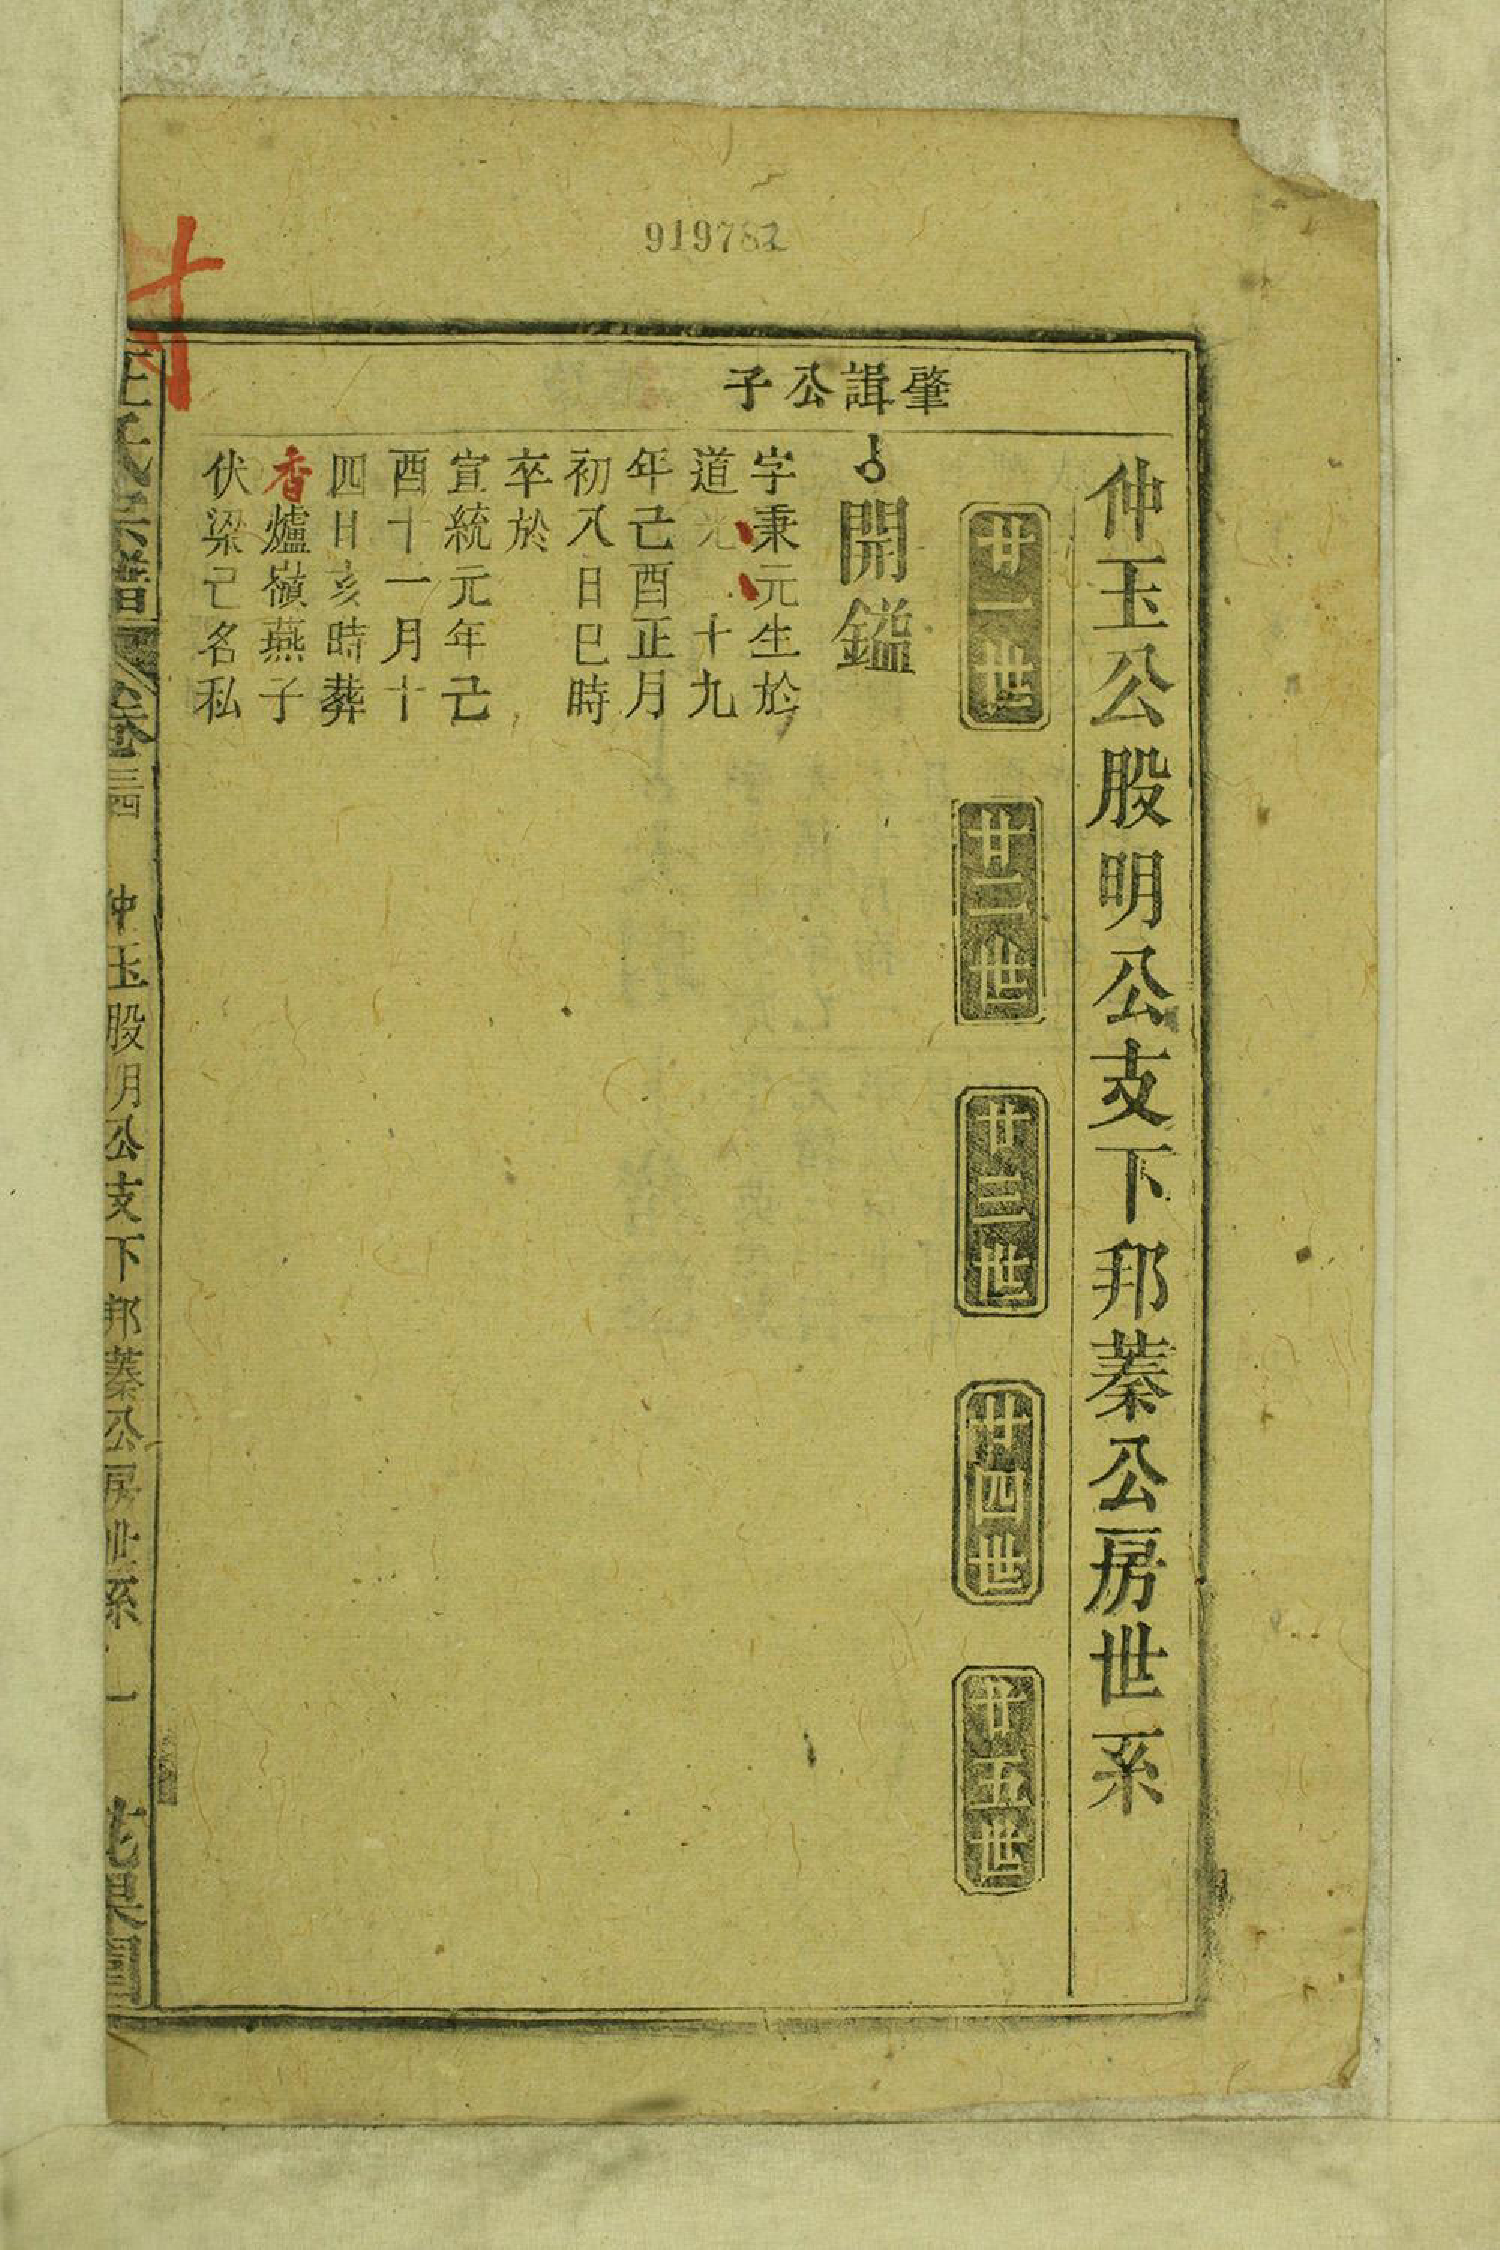 919782
仲玉公股明公支下邦蓁公房世系
廿一世
廿二世
廿三世
廿四世
廿五世
肇諿公子
開鎰
字秉元生於
道光十九
年己酉正月
初八日巳時
卒於
宣統元年己
酉十一月十
四日亥時葬
香爐嶺燕子
伏梁己名私
氏宗譜
卷三四
仲玉股明公支下邦蓁公房世系
一